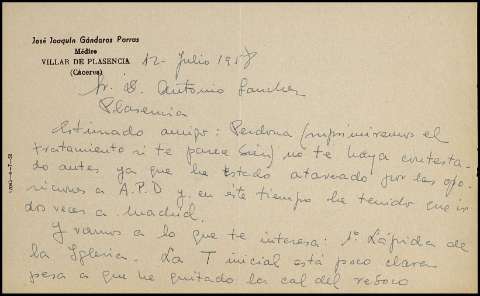 José Joaquín Gándaras Porras
Médico
VILLAR DE PLASENCIA
(Cáceres)
12 - Julio 1958
Sr. D. Antonio Sanchez
Plasencia
Estimado amigo: Perdona (suprimiremos el
tratamiento si te parece bien) no te haya contesta-
do antes ya que he estado atareado por las opo-
siciones a A.P.D y en este tiempo he tenido que ir
dos veces a Madrid.
Y vamos a lo que te interesa: 1º Lápida de
la Iglesia. La T inicial está poco clara
pesa a que he quitado la cal del reboco